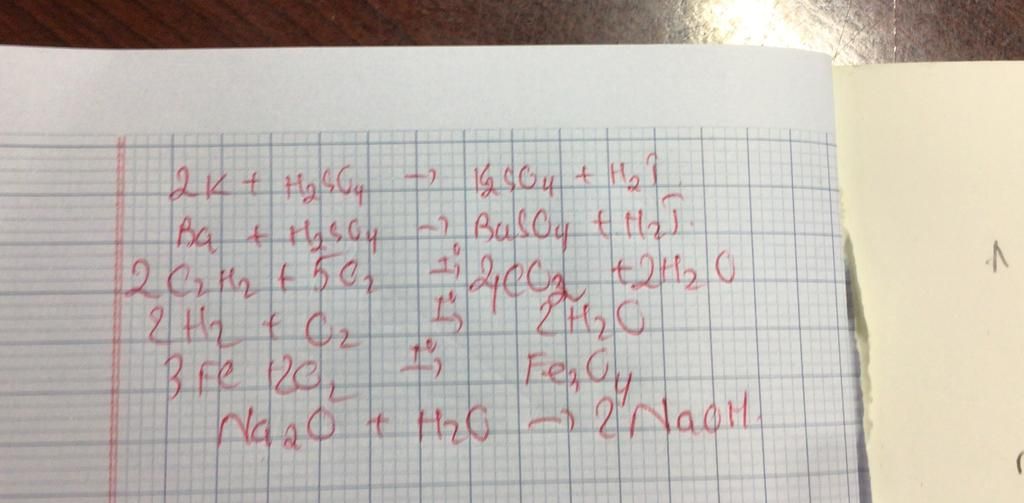 2K + H₂SO₄ → K₂SO₄ + H₂↑
Ba + H₂SO₄ → BaSO₄ + H₂↑.
2C₂H₂ + 5O₂ t°→ 4CO₂ + 2H₂O
2H₂ + O₂ t°→ 2H₂O
3Fe + 2O₂ t°→ Fe₃O₄
Na₂O + H₂O → 2NaOH.